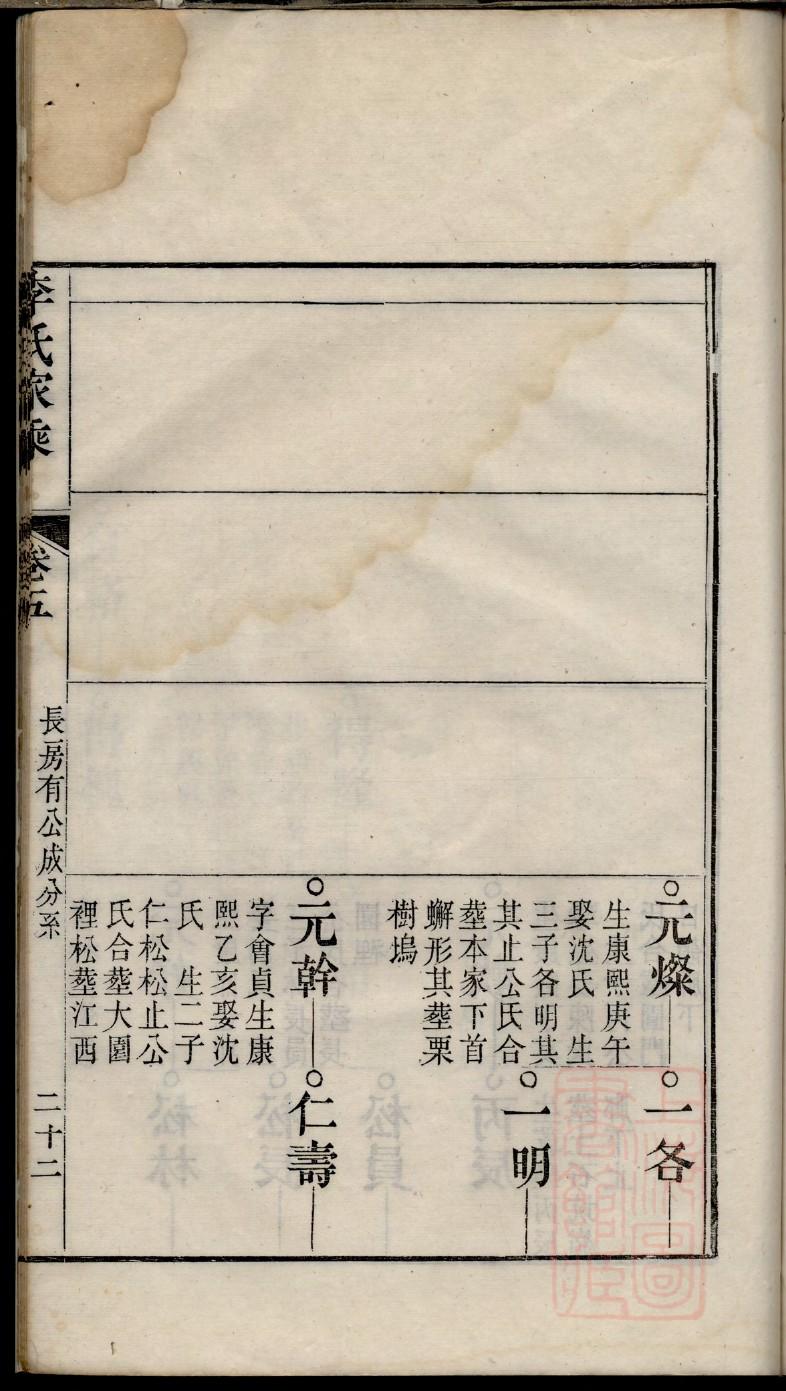 元燦
生康熙庚午
娶沈氏　生
三子各明其
其止公氏合
塟本家下首
蠏形其塟栗
樹塢
一各
一明
元幹
字會貞生康
熙乙亥娶沈
氏　生二子
仁松松止公
氏合塟大園
裡松塟江西
仁壽
李氏家乘
卷五
長房有公成分系
二十二